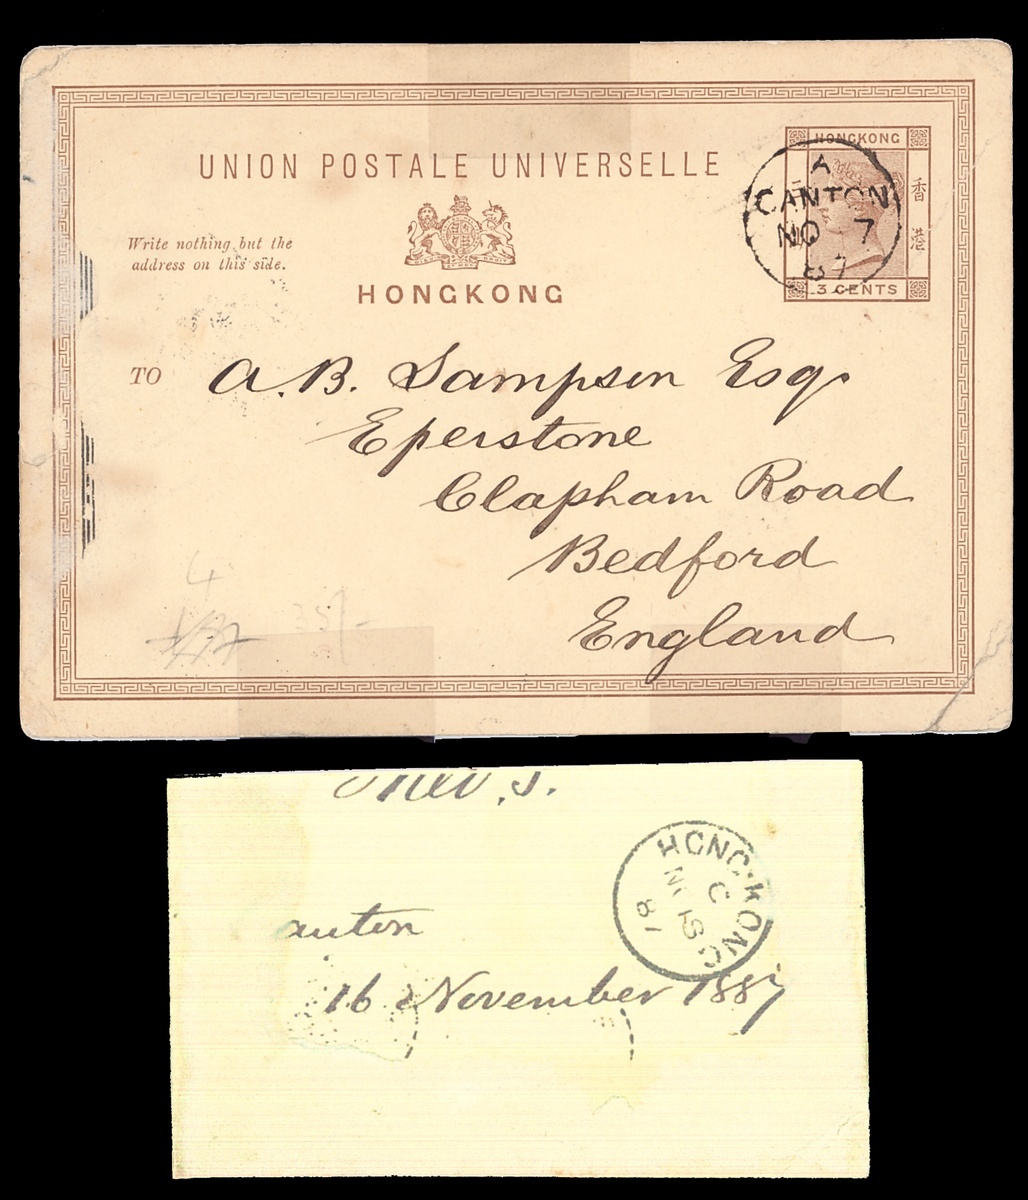 UNION POSTALE UNIVERSELLE
HONGKONG
香港
3 CENTS
A
CANTON
NO 7
87
Write nothing but the
address on this side.
HONGKONG
TO A. B. Sampson Esq.
Eperstone
Clapham Road
Bedford
England
4
35/-
HONG KONG
C
NO 18
87
anton
16 November 1887